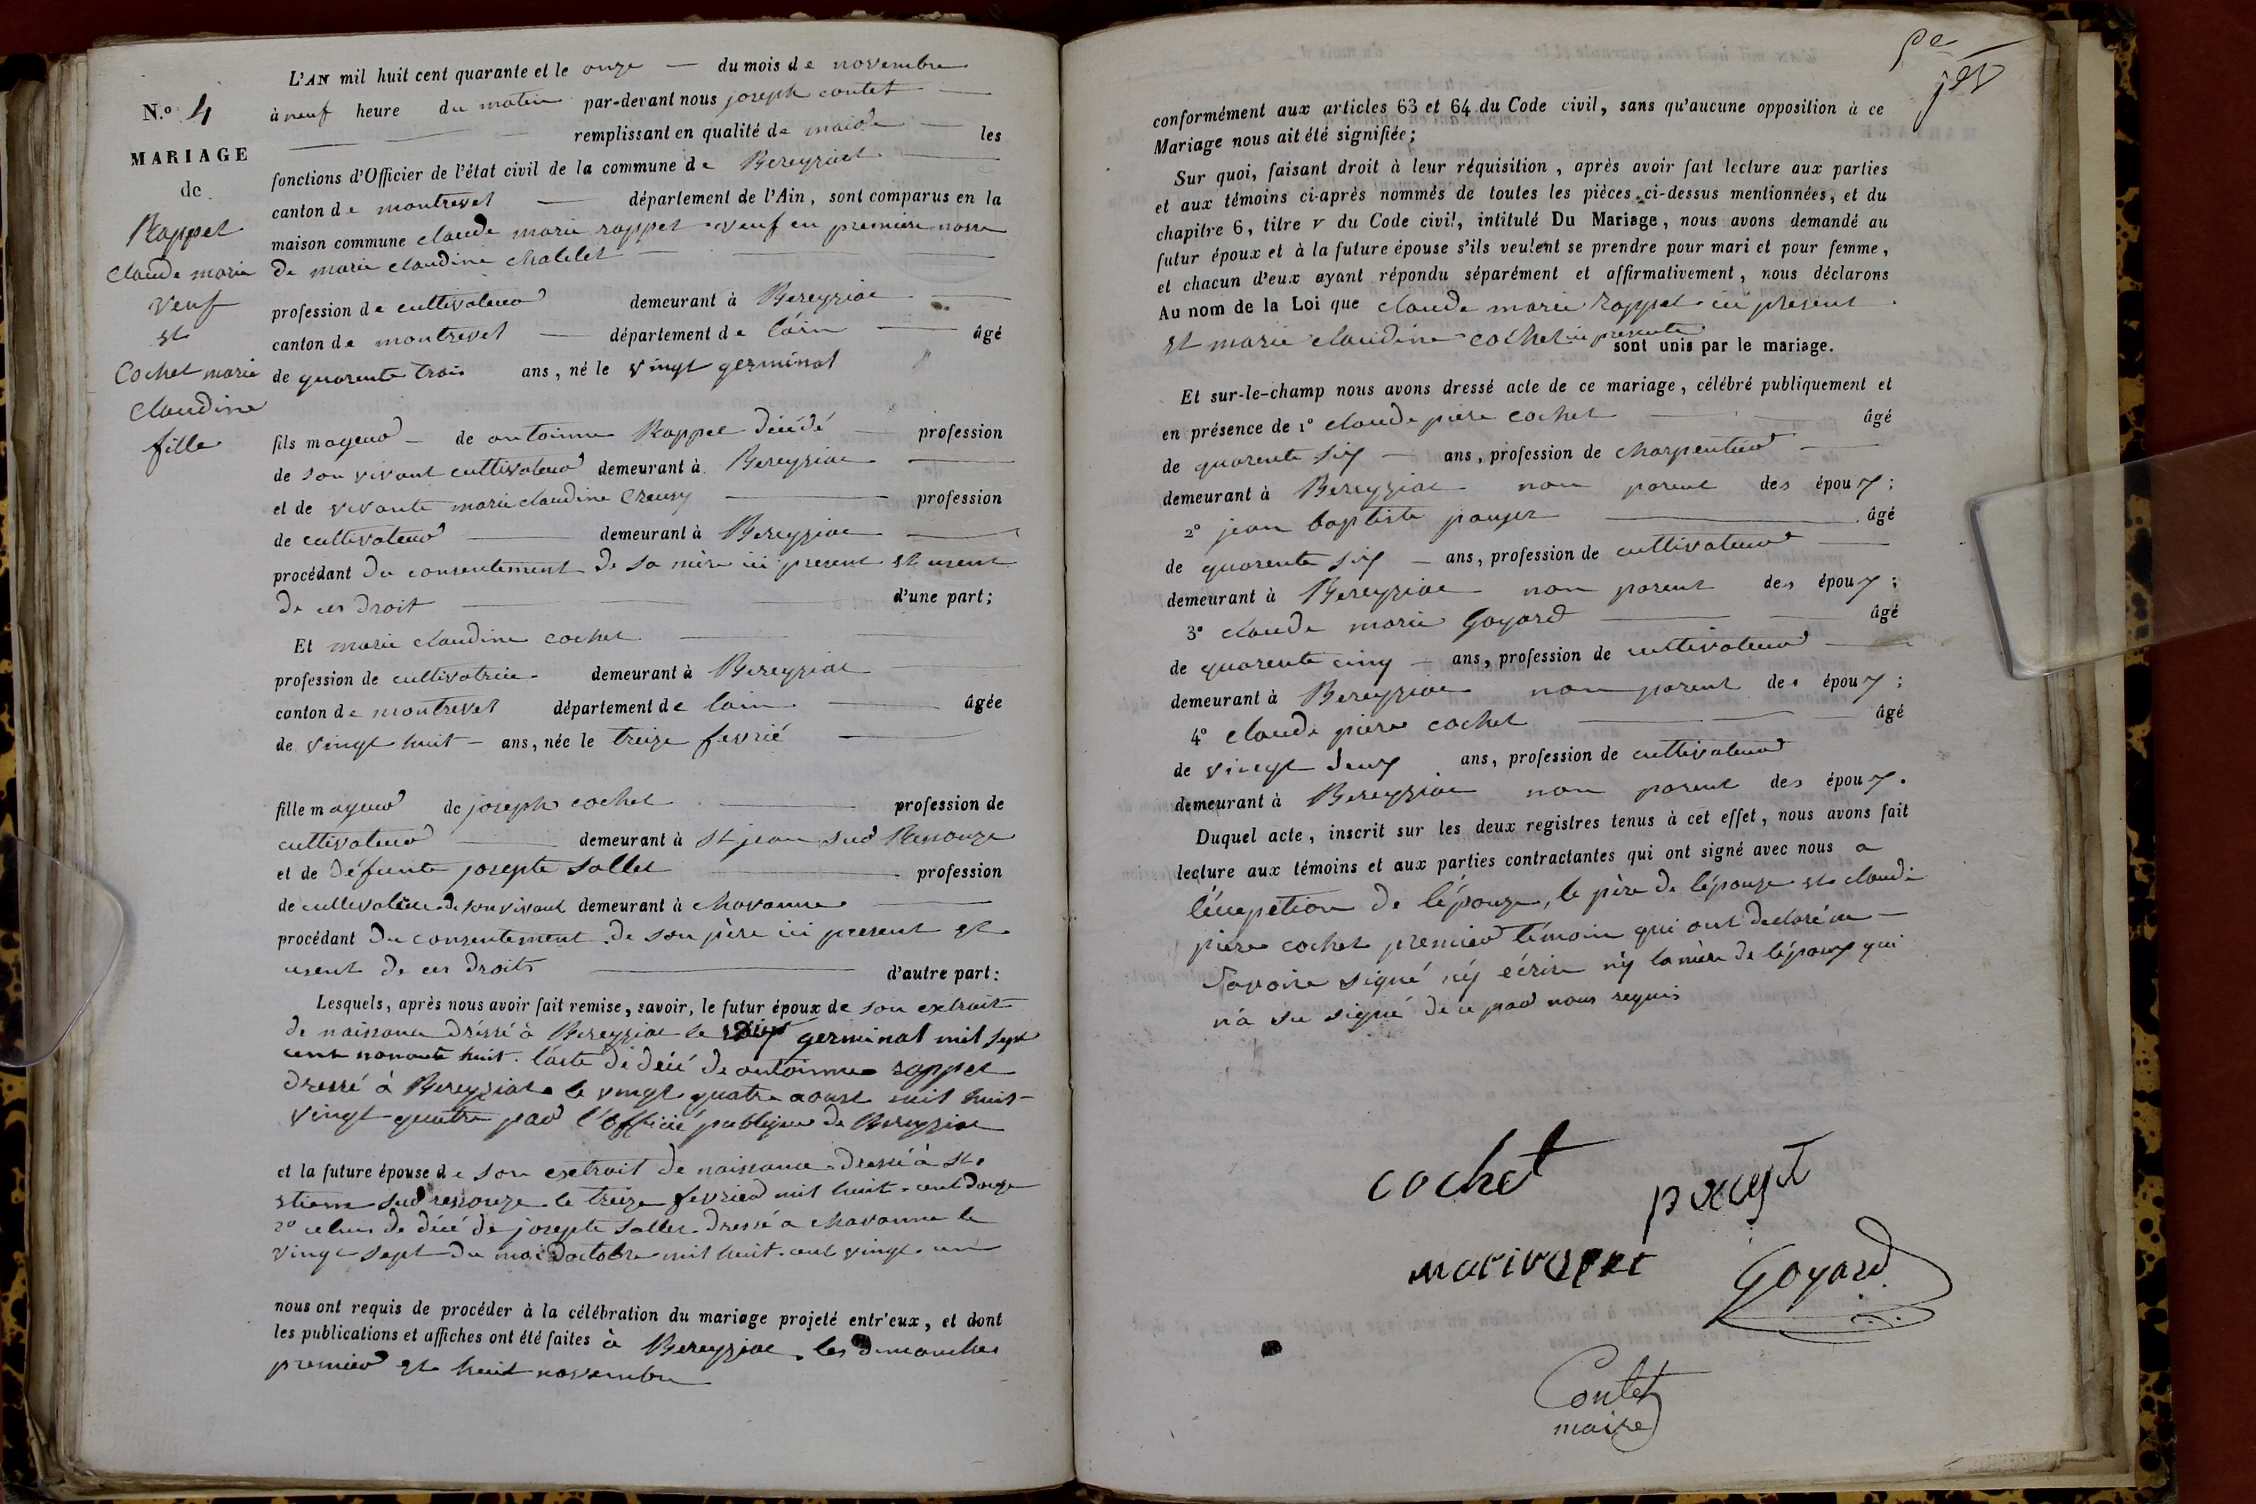 L'AN mil huit cent quarante et le onze du mois de novembre
à neuf heure du matin par-devant nous joseph contet
remplissant en qualité de maire les
fonctions d'Officier de l'état civil de la commune de Bereyziat
canton de montrevel département de l'Ain, sont comparus en la
maison commune claude marie rappet veuf en premiere nosse
de marie claudine chatelet
profession de cultivateur demeurant à Bereyziat
canton de montrevel département de l'ain âgé
de quarente trois ans, né le vingt germinal
fils mageur de antoinne Rappet décédé profession
de son vivant cultivateur demeurant à Bereyziat
et de vivante marie claudine profession
de cultivateur demeurant à Bereyziat
procédant du consentement de sa mère ici present et usent
de ces droit d'une part;
Et marie claudine cochet
profession de cultivatrice demeurant à Bereyziat
canton de montrevel département de lain âgée
de vingt huit ans, née le treize fevrié
fille mageur de joseph cochet profession de
cultivateur demeurant à st jean sur Ressouze
et de défunte josepte Sallet profession
de cultevateur de son vivant demeurant à chavanne
procédant du consentement de son père ici present et
usent de ces droits d'autre part:
Lesquels, après nous avoir fait remise, savoir, le futur époux de son extrait
de naissance dressé à Bereyziat le germinal mil sept
cent nonante huit. l'acte de décé de antoinne rappet
dressé à Bereyziat le vingt quatre aoust mil huit
vingt quatre par l'officié publique de Bereyziat
et la future épouse de son extrait de naissance dressé à st
etiene sur ressouze le treize fevrier mil huit cent douze
2º celui de décé de josepte Sallet dressé a chavanne le
vingt sept du moi d'octobre mil huit cent vingt un
nous ont requis de procéder à la célébration du mariage projeté entr'eux, et dont
les publications et affiches ont été faites à Bereyziat les dimanches
premier et huit novembre
N.º 4
MARIAGE
de
Rappet
claude marie
veuf
et
Cochet marie
claudine
fille
conformément aux articles 63 et 64 du Code civil, sans qu'aucune opposition à ce
Mariage nous ait été signifiée;
Sur quoi, faisant droit à leur réquisition, après avoir fait lecture aux parties
et aux témoins ci-après nommés de toutes les pièces ci-dessus mentionnées, et du
chapitre 6, titre v du Code civil, intitulé Du Mariage, nous avons demandé au
futur époux et à la future épouse s'ils veulent se prendre pour mari et pour femme,
et chacun d'eux ayant répondu séparément et affirmativement, nous déclarons
Au nom de la Loi que claude marie rappet ici présent
et marie claudine cochet ici presente sont unis par le mariage.
Et sur-le-champ nous avons dressé acte de ce mariage, célébré publiquement et
en présence de 1º claude piere cochet âgé
de quarente six ans, profession de charpentier
demeurant à Bereyziat non parent des époux;
2º jean baptiste pauget âgé
de quarente six ans, profession de cultivateur
demeurant à Bereyziat non parent des époux;
3º claude marie Goyard âgé
de quarente cinq ans, profession de cultivateur
demeurant à Bereyziat non parent des époux;
4º claude piere cochet âgé
de vingt deux ans, profession de cultivateur
demeurant à Bereyziat non parent des époux.
Duquel acte, inscrit sur les deux registres tenus à cet effet, nous avons fait
lecture aux témoins et aux parties contractantes qui ont signé avec nous a
l'éxepetion de l'épouze, le père de l'épouze et claude
piere cochet premier témoin qui ont declaré ne
savoire signé ny écrire n'y la mère de l'époux qui
n'a su signé de ce par nous requis
cochet
paugét
Goyard
Contet
maire